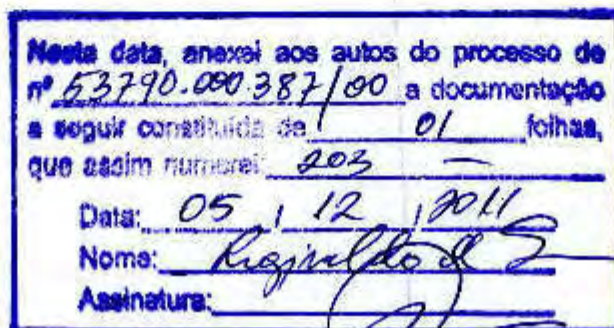 Nesta data, anexei aos autos do processo de
nº 53790.000.387/00 a documentação
a seguir constituída de 01 folhas,
que assim numerei: 203 —
Data: 05 / 12 / 2011
Nome: Reginaldo
Assinatura: